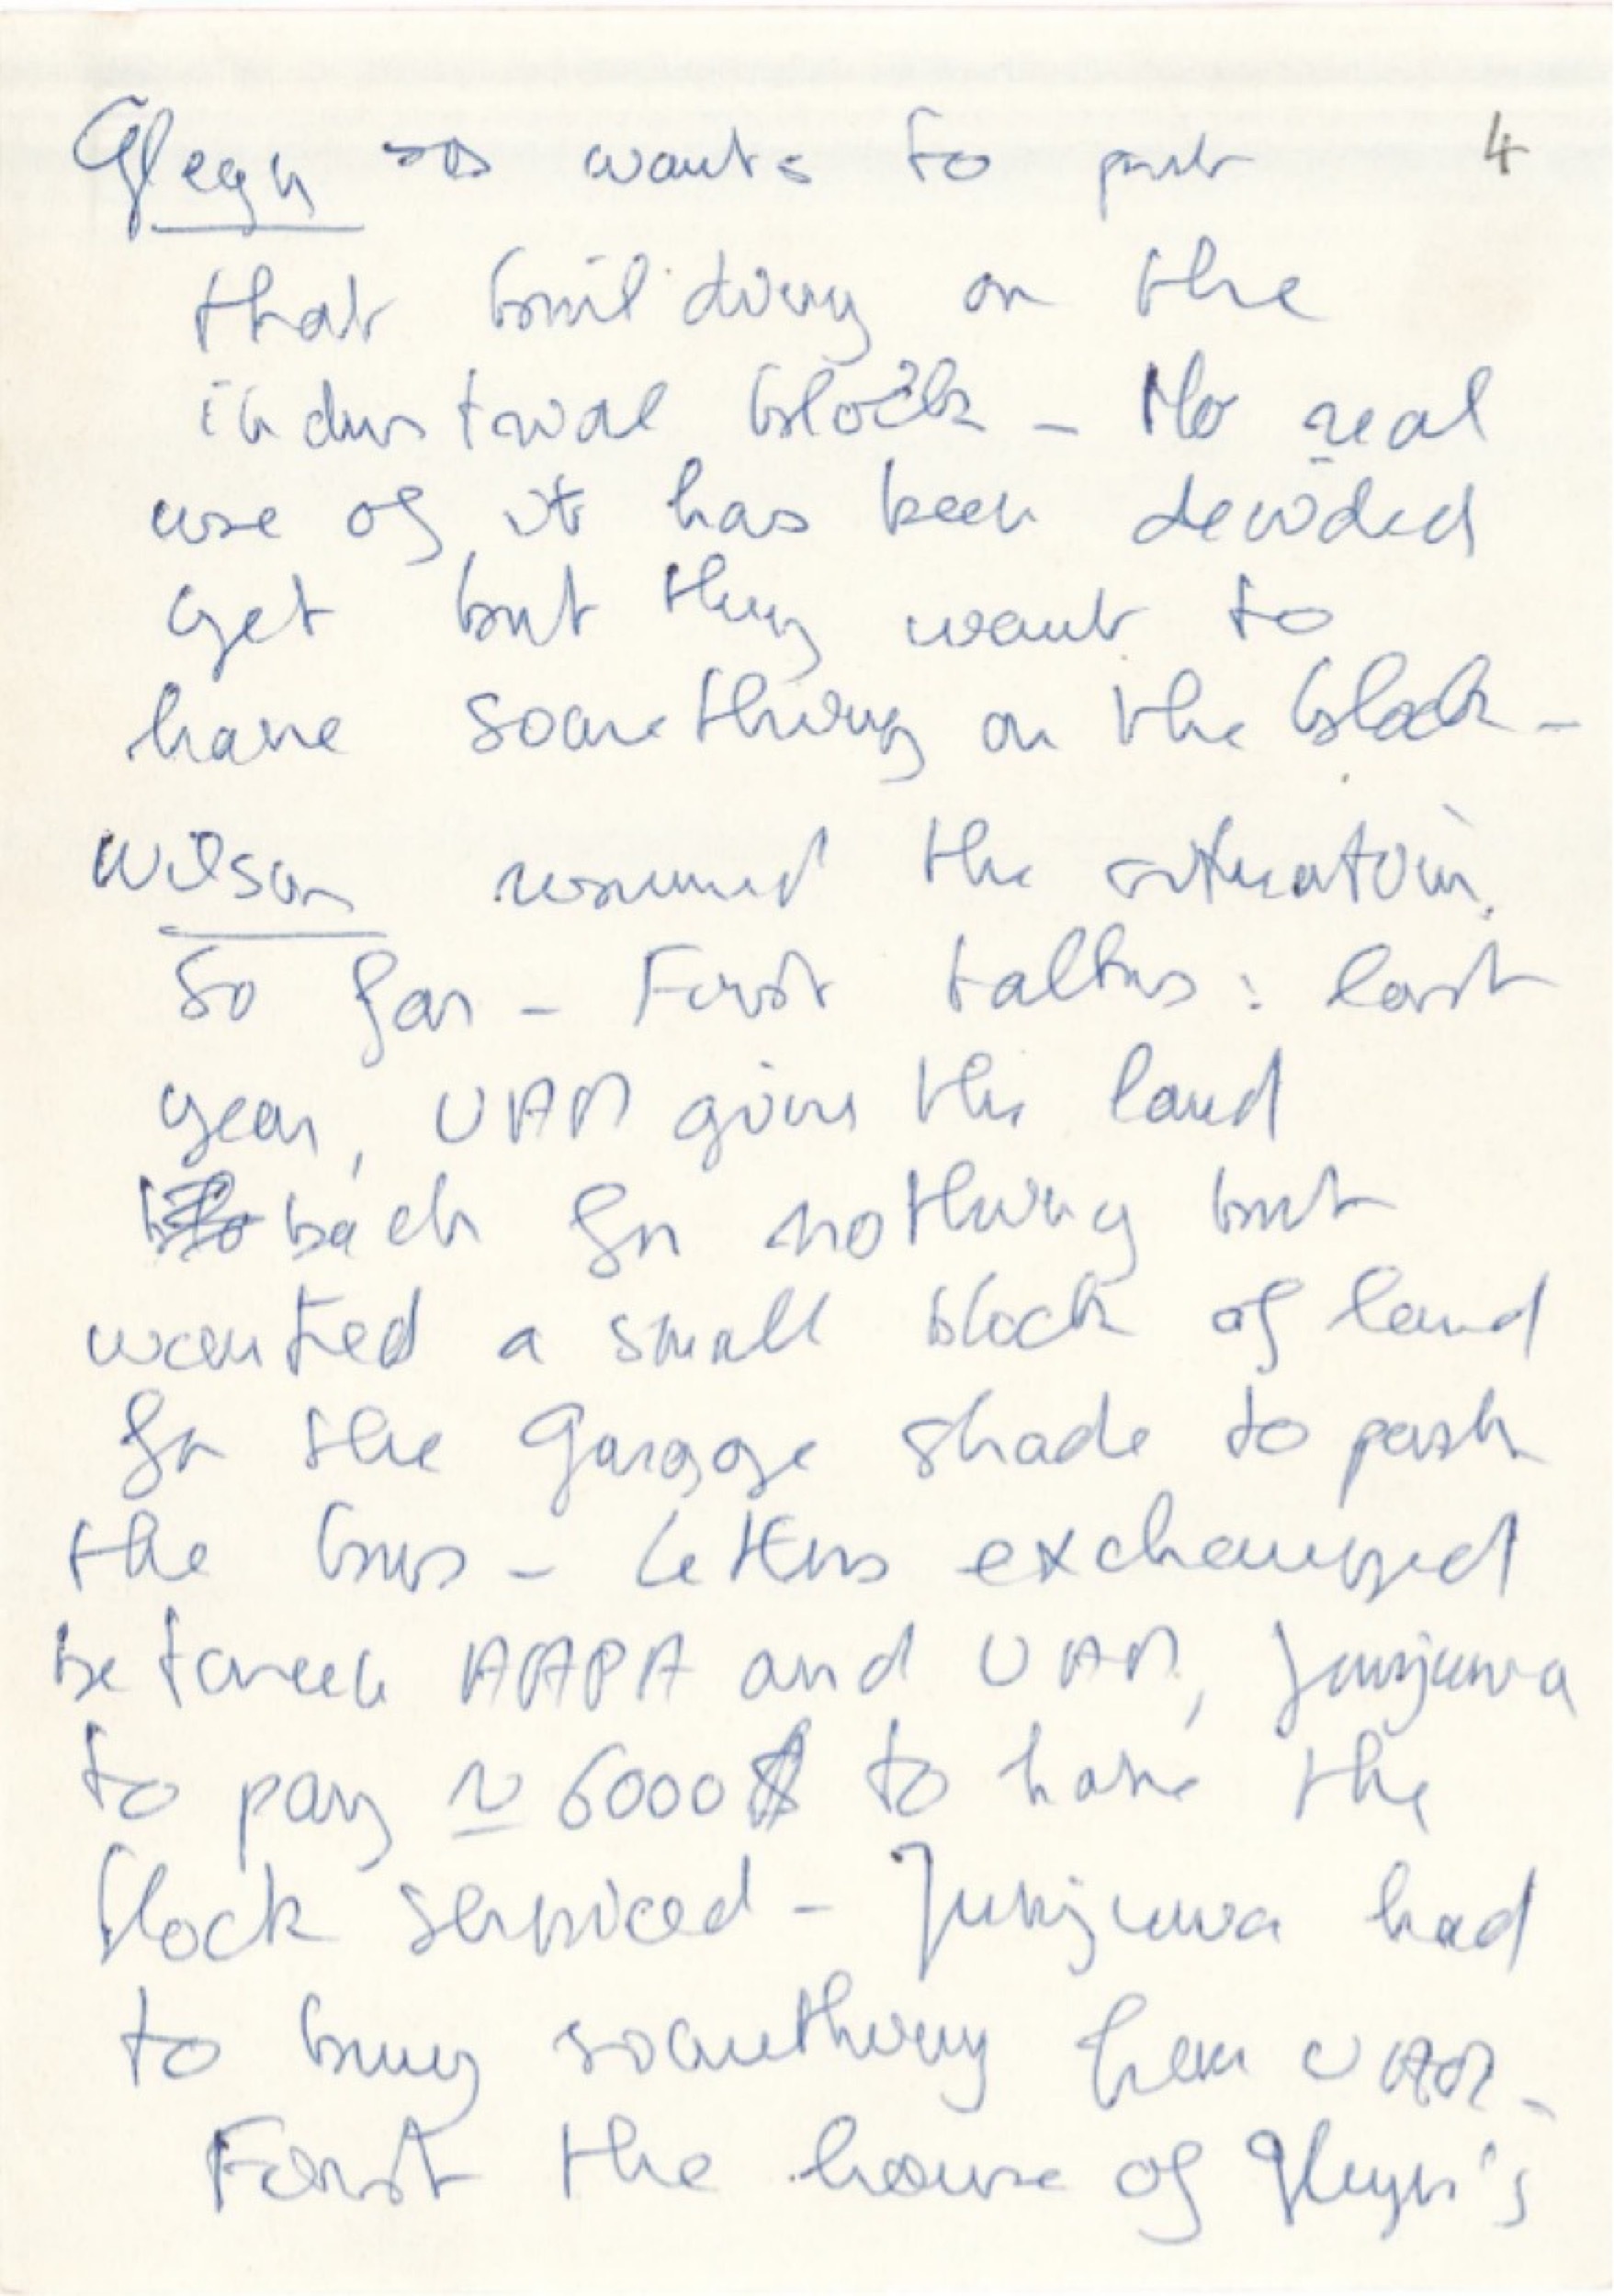 wants to put 4
that building on the
industrial block - No real
use of it has been decided
yet but they want to
have something on the block -
Wilson resumed the situation
so far - First talks : last
year, UAM gives the land
back for nothing but
wanted a small block of land
for the Garage shade to park
the bus - Letters exchanged
between AAPA and UAM, Junjuwa
to pay ≃ 6000 $ to have the
block serviced - Junjuwa had
to buy something from UAM -
First the house of